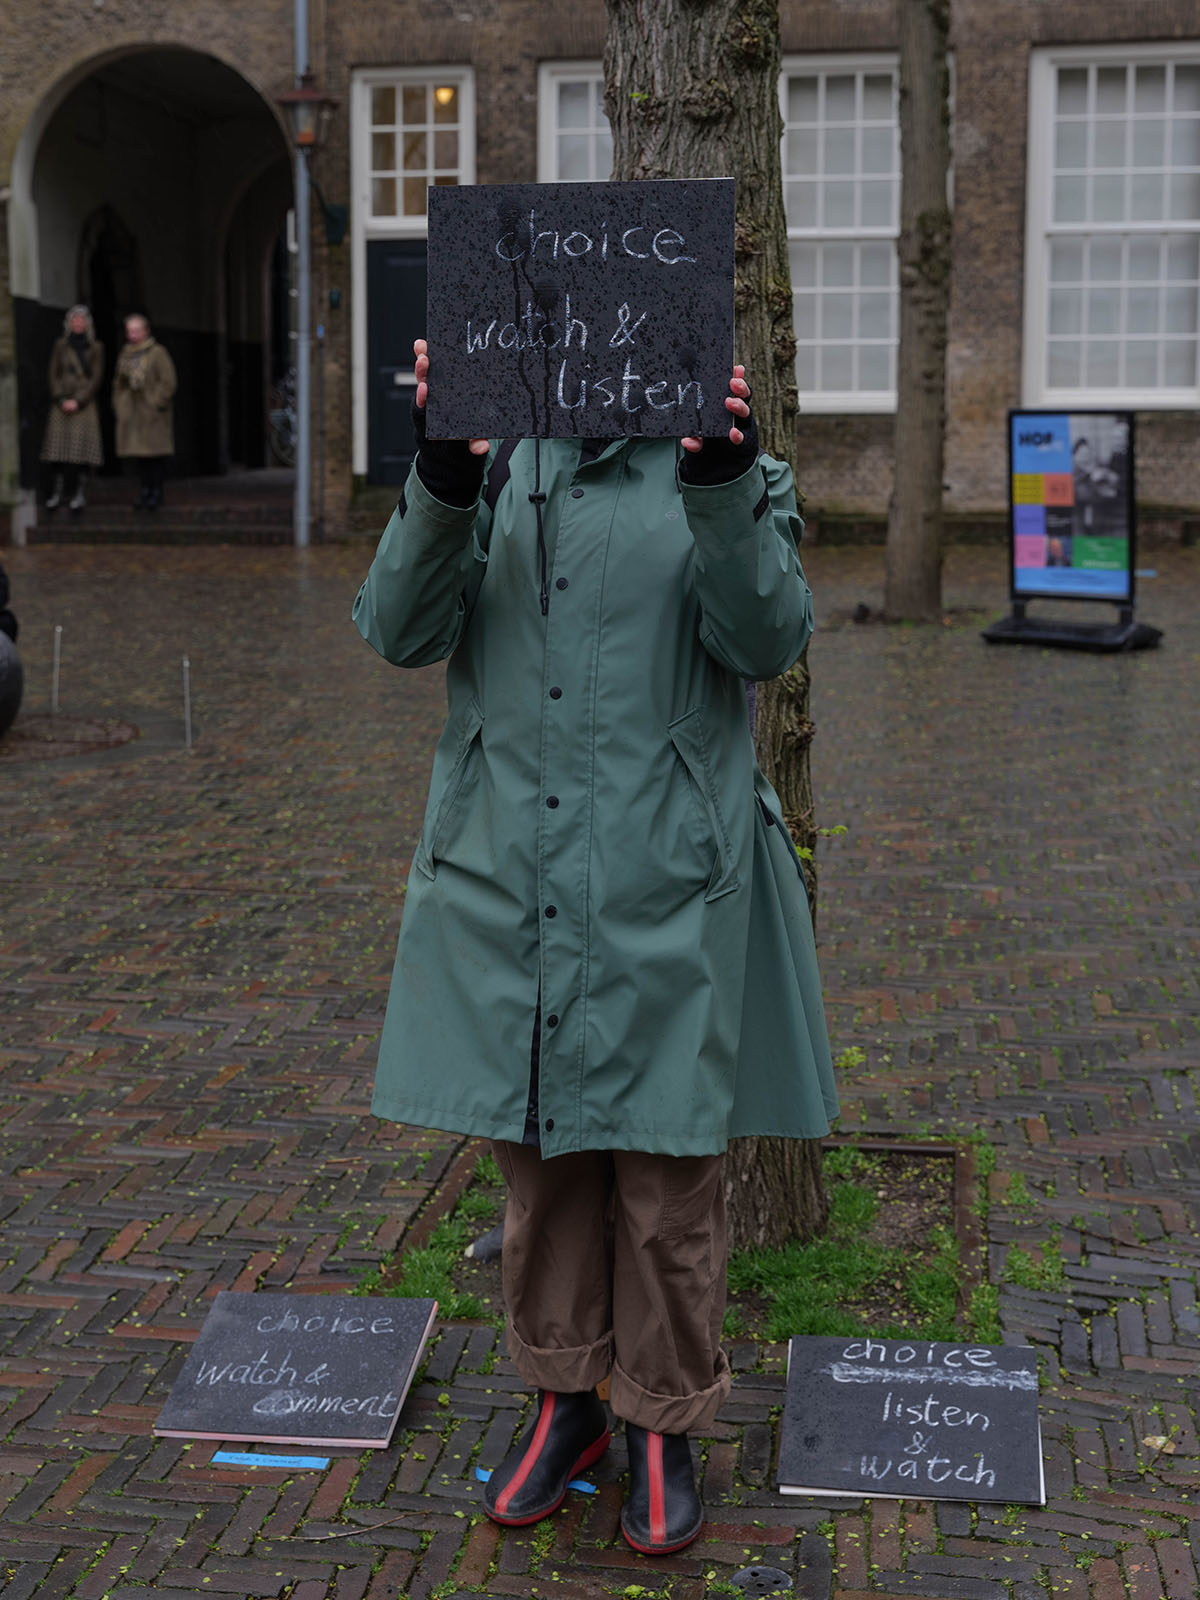 choice
watch &
listen
HOF
choice
watch &
comment
choice
listen
&
watch